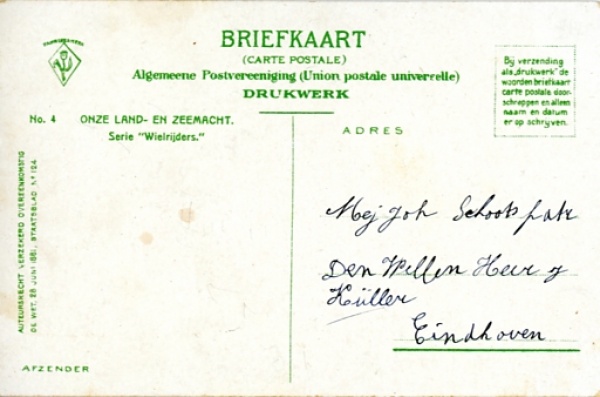 BRIEFKAART
(CARTE POSTALE)
Algemeene Postvereeniging (Union postale universelle)
DRUKWERK
Bij verzending
als „drukwerk" de
woorden briefkaart
carte postale door-
schrappen en alleen
naam en datum
er op schrijven.
No. 4 ONZE LAND- EN ZEEMACHT.
Serie "Wielrijders."
ADRES
AUTEURSRECHT VERZEKERD OVEREENKOMSTIG
DE WET, 28 JUNI 1881, STAATSBLAD No 124
Mej Joh Schoots
Den Heer
Küller
Eindhoven
AFZENDER